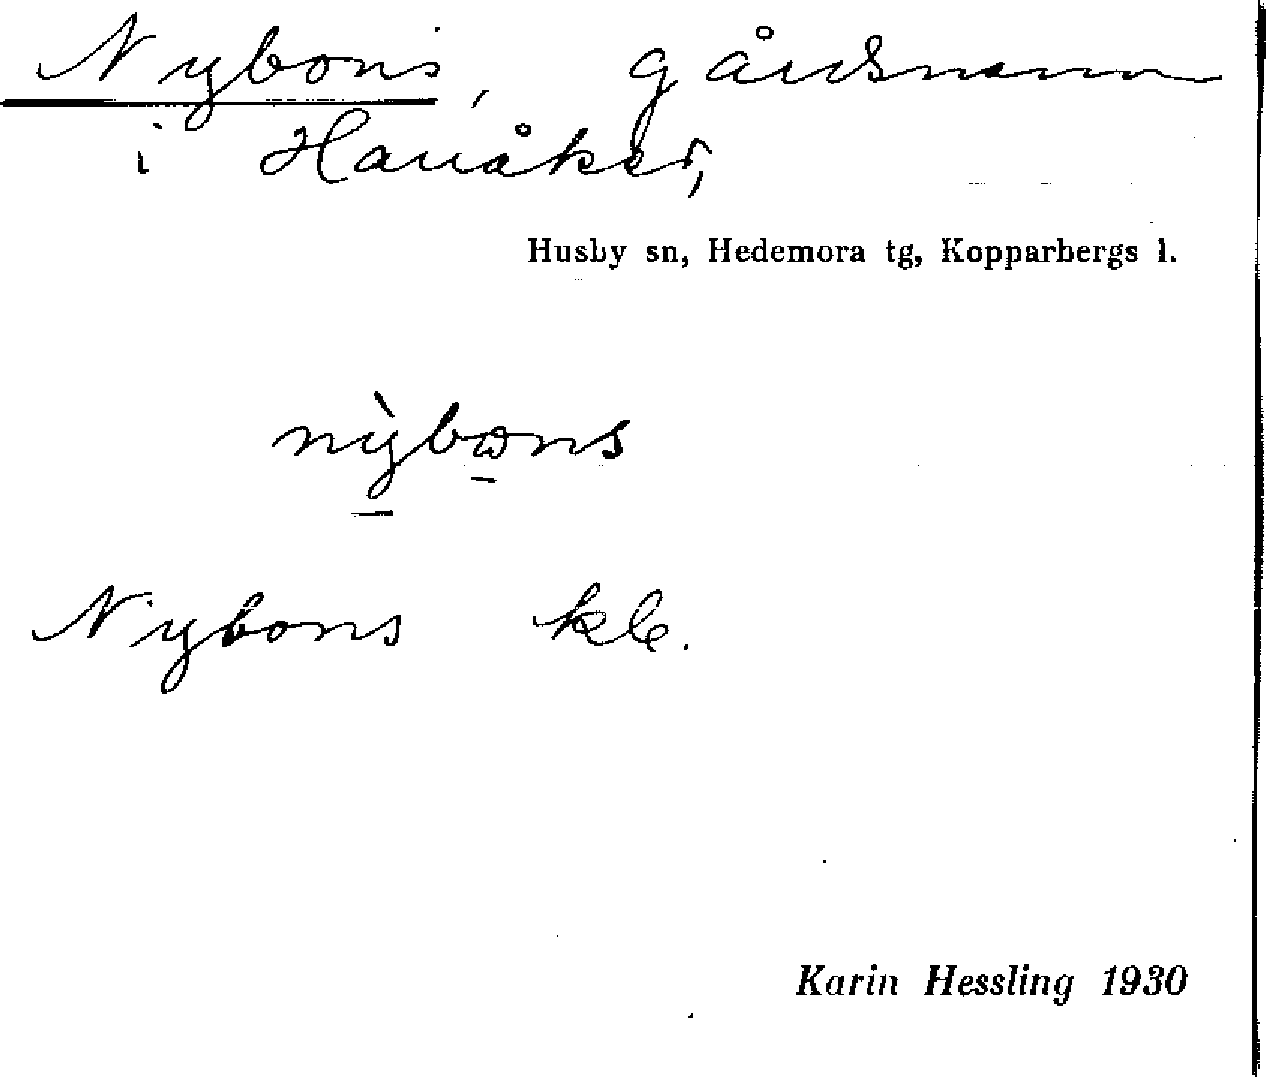 Nybons, gårdsnamn
i Hanåker,
Husby sn, Hedemora tg, Kopparbergs l.
nỳbωns
Nybons kle.
Karin Hessling 1930